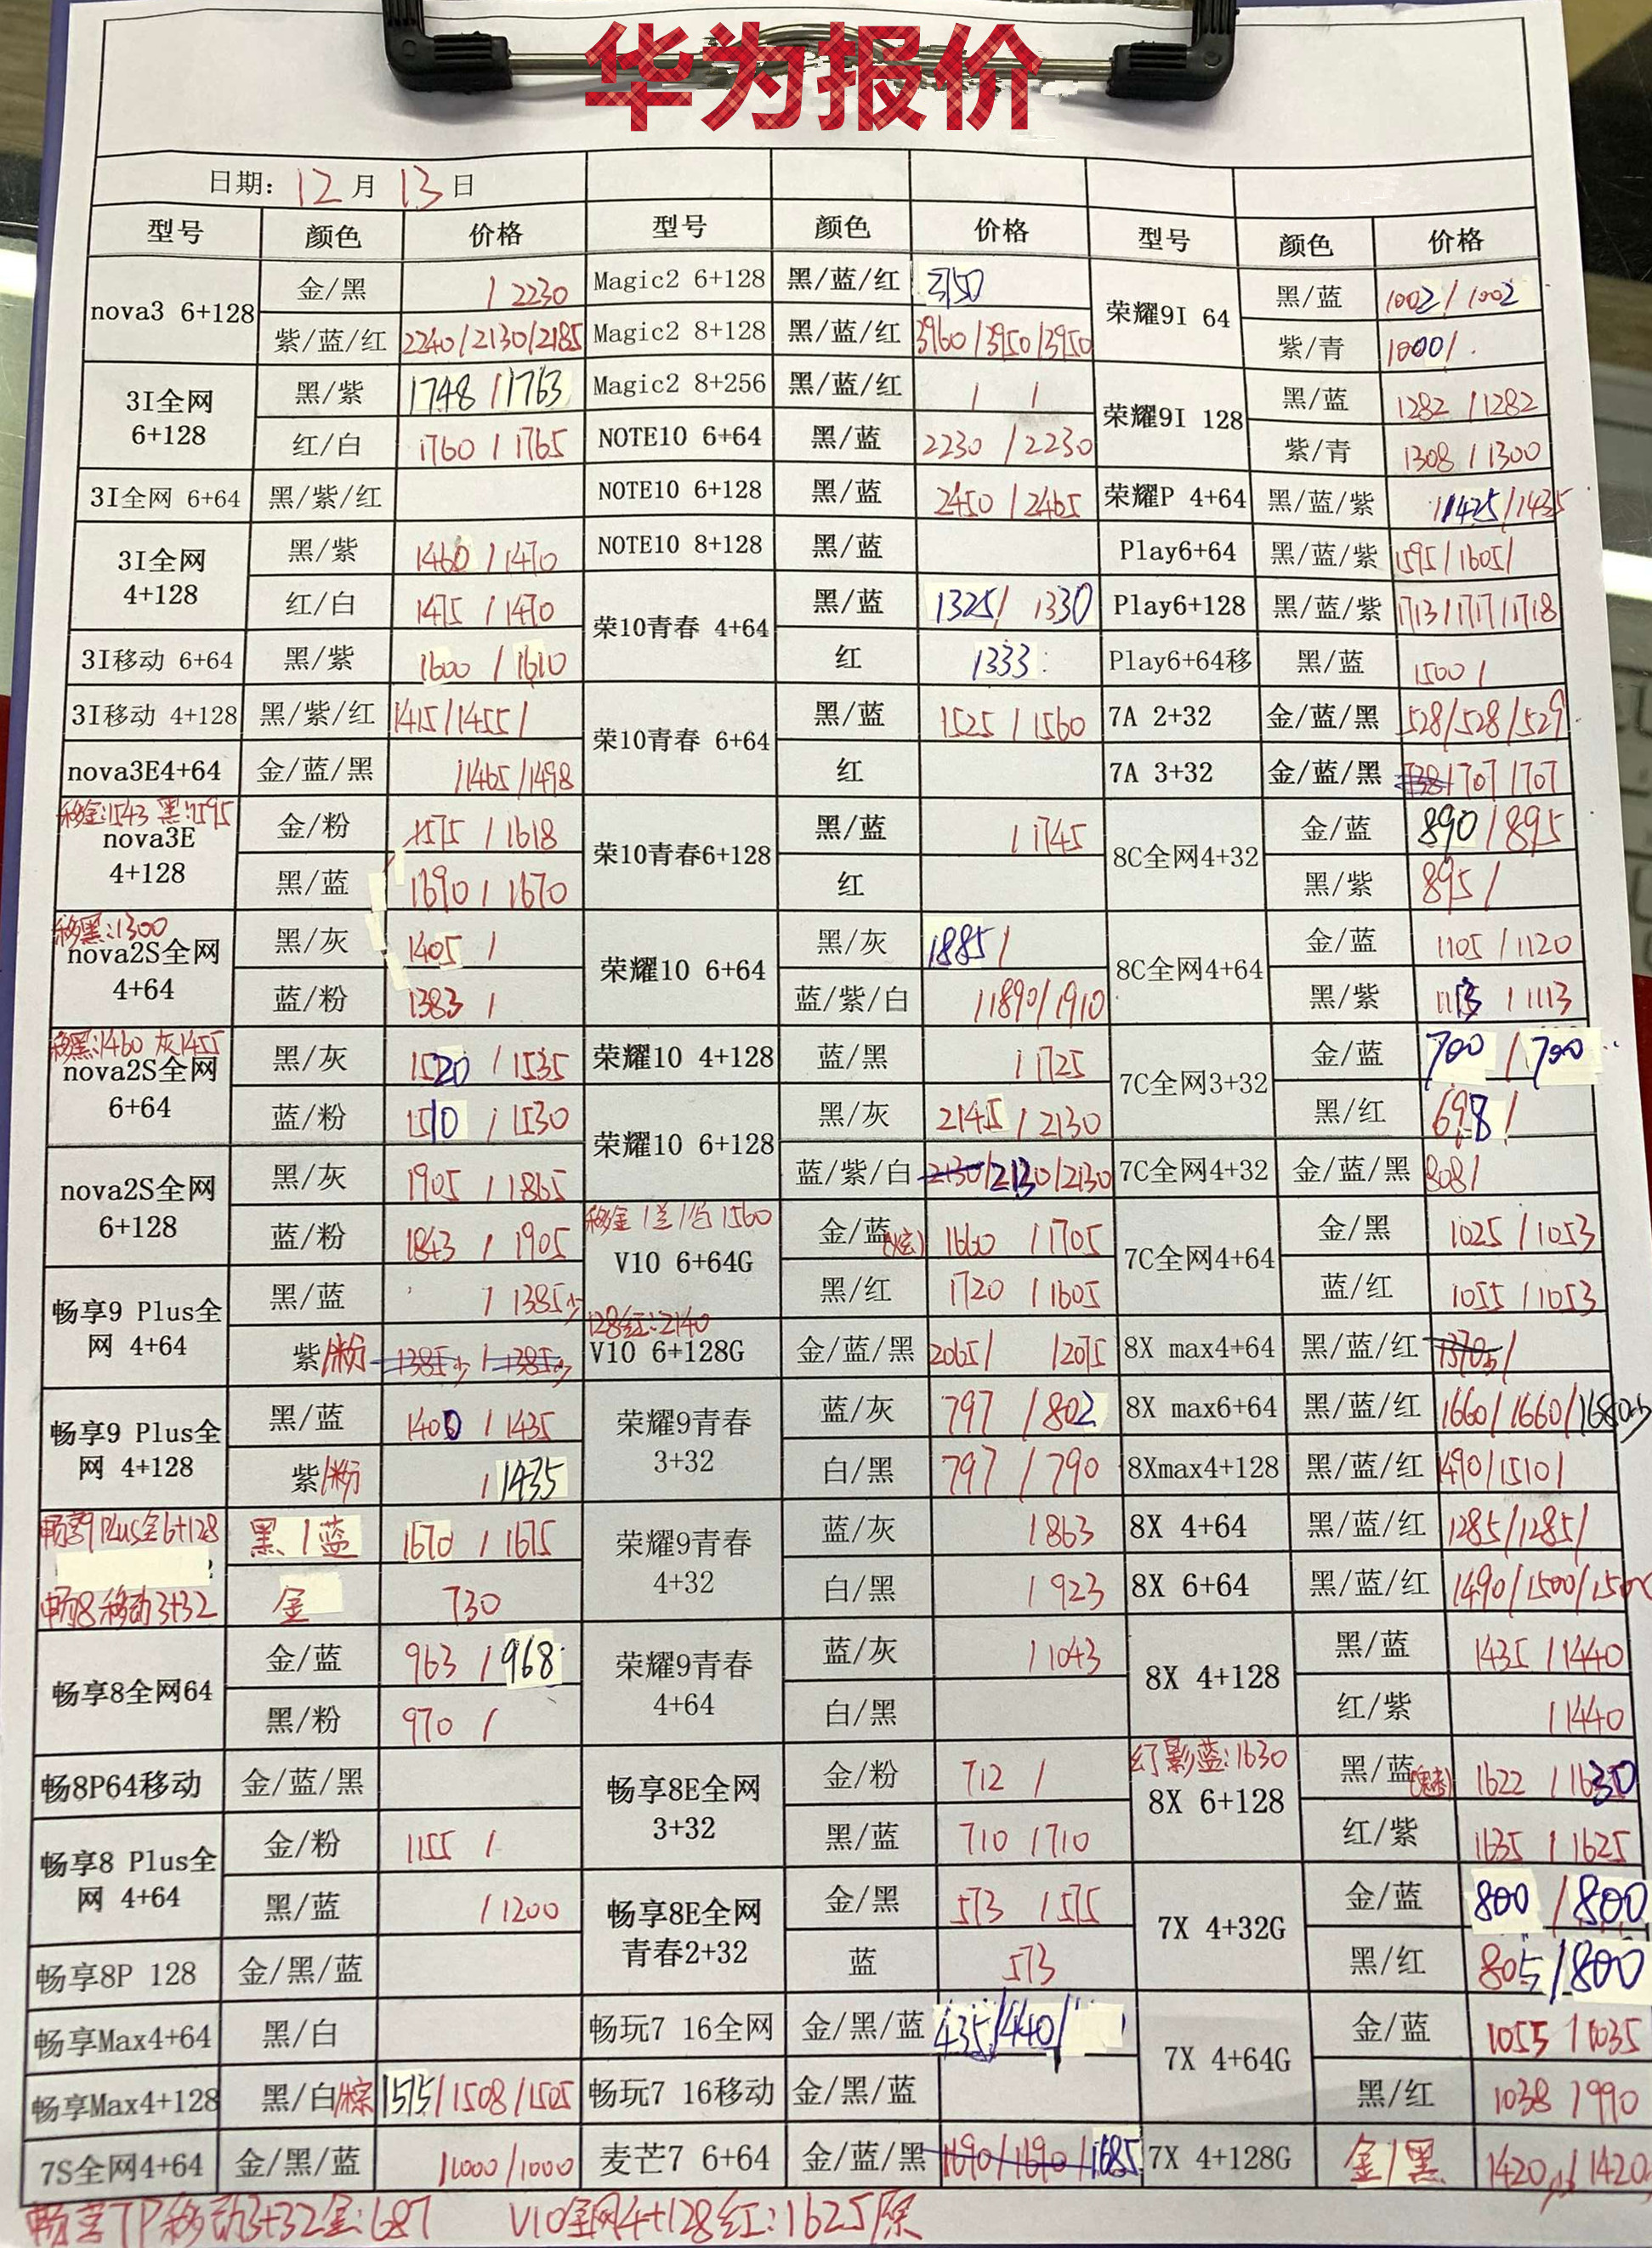 华为报价
日期: 12月13日
型号 颜色 价格 型号 颜色 价格 型号 颜色 价格
nova3 6+128 金/黑 / 2230 Magic2 6+128 黑/蓝/红 3150 荣耀9I 64 黑/蓝 1002/1002
紫/蓝/红 2240/2130/2185 Magic2 8+128 黑/蓝/红 3960/3950/3950 紫/青 1000/
3I全网 6+128 黑/紫 1748/1763 Magic2 8+256 黑/蓝/红 / / 荣耀9I 128 黑/蓝 1282/1282
红/白 1760/1765 NOTE10 6+64 黑/蓝 2230/2230 紫/青 1308/1300
3I全网 6+64 黑/紫/红 NOTE10 6+128 黑/蓝 2450/2465 荣耀P 4+64 黑/蓝/紫 /1425/1435
3I全网 4+128 黑/紫 1460/1470 NOTE10 8+128 黑/蓝 Play6+64 黑/蓝/紫 1595/1605/
红/白 1475/1470 荣10青春 4+64 黑/蓝 1325/1330 Play6+128 黑/蓝/紫 1713/1717/1718
3I移动 6+64 黑/紫 1600/1610 红 1333 Play6+64移 黑/蓝 1500/
3I移动 4+128 黑/紫/红 1415/1455/ 荣10青春 6+64 黑/蓝 1525/1560 7A 2+32 金/蓝/黑 528/528/529
nova3E4+64 金/蓝/黑 /1465/1498 红 7A 3+32 金/蓝/黑 738/707/707
移金:1543 黑:1595
nova3E 4+128 金/粉 1575/1618 荣10青春6+128 黑/蓝 /1745 8C全网4+32 金/蓝 890/895
黑/蓝 1690/1670 红 黑/紫 895/
移黑:1300
nova2S全网 4+64 黑/灰 1405/ 荣耀10 6+64 黑/灰 1885/ 8C全网4+64 金/蓝 1105/1120
蓝/粉 1383/ 蓝/紫/白 /1890/1910 黑/紫 1113/1113
移黑:1460 灰1455
nova2S全网 6+64 黑/灰 1520/1535 荣耀10 4+128 蓝/黑 /1725 7C全网3+32 金/蓝 700/700
蓝/粉 1510/1530 荣耀10 6+128 黑/灰 2145/2130 黑/红 698/
nova2S全网 6+128 黑/灰 1905/1865 蓝/紫/白 2130/2130/2130 7C全网4+32 金/蓝/黑 808/
移金/兰/白1560
蓝/粉 1843/1905 V10 6+64G 金/蓝(炫) 1660/1705 7C全网4+64 金/黑 1025/1053
畅享9 Plus全网 4+64 黑/蓝 /1385少 黑/红 1720/1605 蓝/红 1055/1053
128红:2140
紫/粉 1385少/1385少 V10 6+128G 金/蓝/黑 2065/ /2075 8X max4+64 黑/蓝/红 1370少/
畅享9 Plus全网 4+128 黑/蓝 1400/1435 荣耀9青春 3+32 蓝/灰 797/802 8X max6+64 黑/蓝/红 1660/1660/1680少
紫/粉 /1435 白/黑 797/790 8Xmax4+128 黑/蓝/红 1490/1510/
畅享9Plus全6+128 黑/蓝 1670/1675 荣耀9青春 4+32 蓝/灰 /863 8X 4+64 黑/蓝/红 1285/1285/
畅8移动3+32 金 730 白/黑 /923 8X 6+64 黑/蓝/红 1490/1500/
畅享8全网64 金/蓝 963/968 荣耀9青春 4+64 蓝/灰 /1043 8X 4+128 黑/蓝 1435/1440
黑/粉 970/ 白/黑 红/紫 /1440
幻影蓝:1630
畅8P64移动 金/蓝/黑 畅享8E全网 3+32 金/粉 712/ 8X 6+128 黑/蓝 1622/1630
畅享8 Plus全网 4+64 金/粉 1155/ 黑/蓝 710/710 红/紫 1635/1625
黑/蓝 /1200 畅享8E全网 青春2+32 金/黑 573/575 7X 4+32G 金/蓝 800/800
畅享8P 128 金/黑/蓝 蓝 573 黑/红 805/800
畅享Max4+64 黑/白 畅玩7 16全网 金/黑/蓝 435/440/ 7X 4+64G 金/蓝 1055/1035
畅享Max4+128 黑/白/棕 1515/1508/1505 畅玩7 16移动 金/黑/蓝 黑/红 1038/990
7S全网4+64 金/黑/蓝 /1000/1000 麦芒7 6+64 金/蓝/黑 1690/1690/1685 7X 4+128G 金/黑 1420少/1420
畅享7P移动3+32金:687 V10全网4+128红:1625原